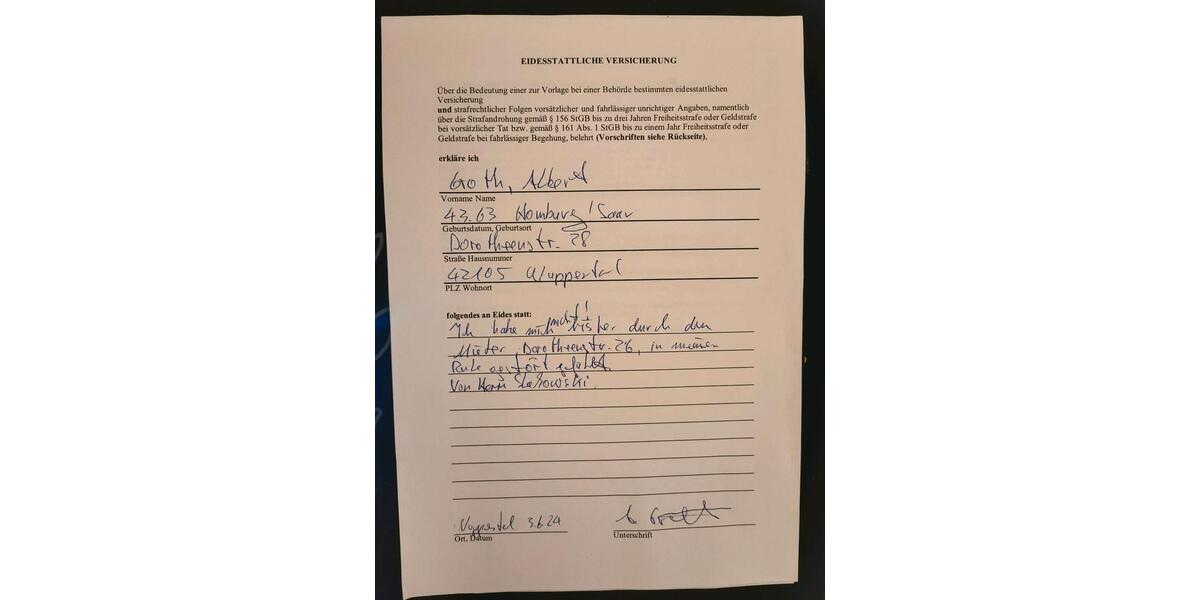 EIDESSTATTLICHE VERSICHERUNG
Über die Bedeutung einer zur Vorlage bei einer Behörde bestimmten eidesstattlichen
Versicherung
und strafrechtlicher Folgen vorsätzlicher und fahrlässiger unrichtiger Angaben, namentlich
über die Strafandrohung gemäß § 156 StGB bis zu drei Jahren Freiheitsstrafe oder Geldstrafe
bei vorsätzlicher Tat bzw. gemäß § 161 Abs. 1 StGB bis zu einem Jahr Freiheitsstrafe oder
Geldstrafe bei fahrlässiger Begehung, belehrt (Vorschriften siehe Rückseite),
erkläre ich
Groth, Albert
Vorname Name
4.3.63 Homburg/Saar
Geburtsdatum, Geburtsort
Dorotheenstr. 28
Straße Hausnummer
42105 Wuppertal
PLZ Wohnort
folgendes an Eides statt:
nicht!
Ich habe mich bisher durch den
Mieter, Dorotheenstr. 26, in meiner
Ruhe gestört gefühlt.
Von Herrn
Wuppertal 3.6.24
Ort, Datum
Unterschrift